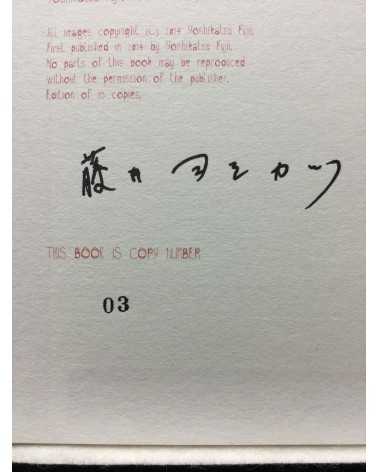 All images copyright (c) 2014 Yoshikatsu Fujii.
First published in 2014 by Yoshikatsu Fujii.
No parts of this book may be reproduced
without the permission of the publisher.
Edition of 10 copies.
藤井ヨシカツ
THIS BOOK IS COPY NUMBER
03